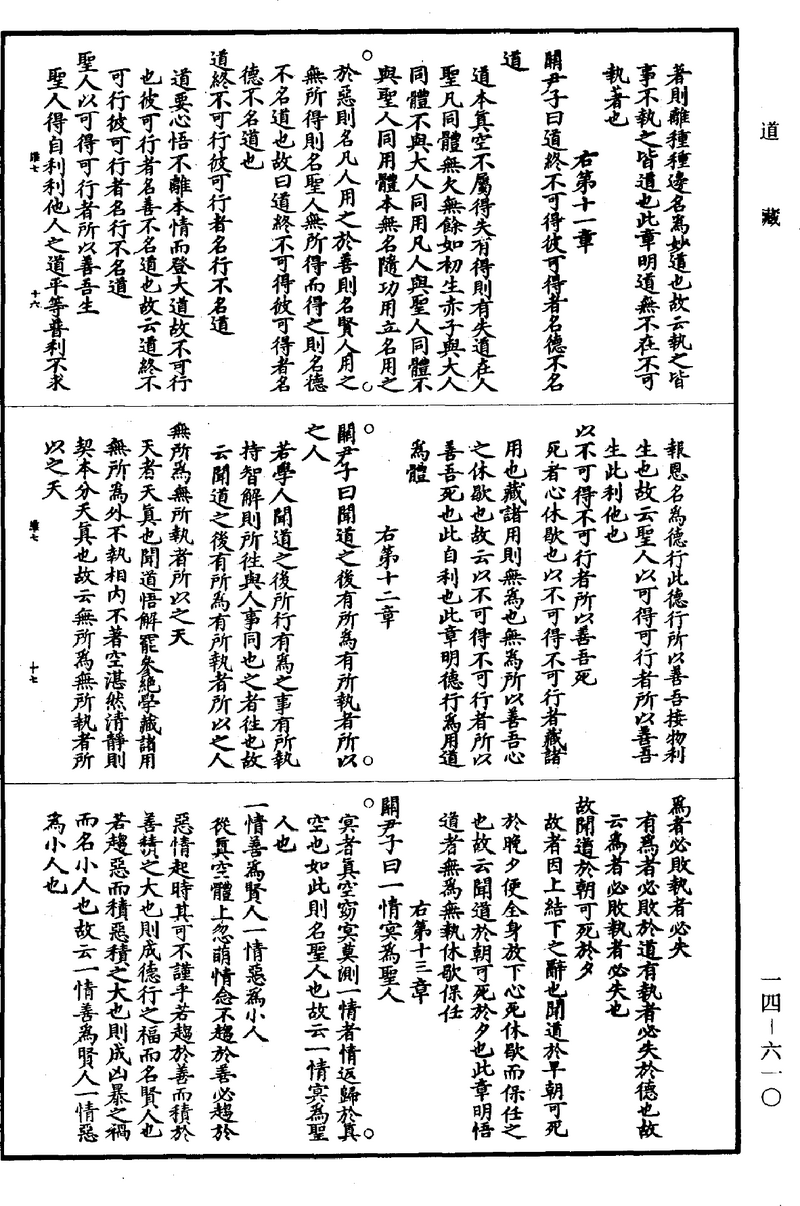 道藏
著則離種種邊名爲妙道也故云執之皆
事不執之皆道也此章明道無不在不可
執著也
右第十一章
關尹子曰道終不可得彼可得者名德不名
道
道本真空不屬得失有得則有失道在人
聖凡同體無欠無餘如初生赤子與大人
同體不與大人同用凡人與聖人同體不
與聖人同用體本無名隨功用立名用之
於惡則名凡人用之於善則名賢人用之
無所得則名聖人無所得而得之則名德
不名道也故曰道終不可得彼可得者名
德不名道也
道終不可行彼可行者名行不名道
道要心悟不離本情而登大道故不可行
也彼可行者名善不名道也故云道終不
可行彼可行者名行不名道
聖人以可得可行者所以善吾生
聖人得自利利他人之道平等普利不求
維七
十六
報恩名爲德行此德行所以善吾接物利
生也故云聖人以可得可行者所以善吾
生此利他也
以不可得不可行者所以善吾死
死者心休歇也以不可得不可行者藏諸
用也藏諸用則無爲也無爲所以善吾心
之休歇也故云以不可得不可行者所以
善吾死也此自利也此章明德行爲用道
爲體
右第十二章
關尹子曰聞道之後有所爲有所執者所以
之人
若學人聞道之後所行有爲之事有所執
持智解則所往與人事同也之者往也故
云聞道之後有所爲有所執者所以之人
無所爲無所執者所以之天
天者天真也聞道悟解罷參絕學藏諸用
無所爲外不執相內不著空湛然清靜則
契本分天真也故云無所爲無所執者所
以之天
維七
十七
爲者必敗執者必失
有爲者必敗於道有執者必失於德也故
云爲者必敗執者必失也
故聞道於朝可死於夕
故者因上結下之辭也聞道於早朝可死
於晚夕便全身放下心死休歇而保任之
也故云聞道於朝可死於夕也此章明悟
道者無爲無執休歇保任
右第十三章
關尹子曰一情冥爲聖人
冥者真空窈冥莫測一情者情返歸於真
空也如此則名聖人也故云一情冥爲聖
人也
一情善爲賢人一情惡爲小人
從真空體上忽萌情念不趨於善必趨於
惡情起時其可不謹乎若趨於善而積於
善積之大也則成德行之福而名賢人也
若趨惡而積惡積之大也則成凶暴之禍
而名小人也故云一情善爲賢人一情惡
爲小人也
一四－六一〇